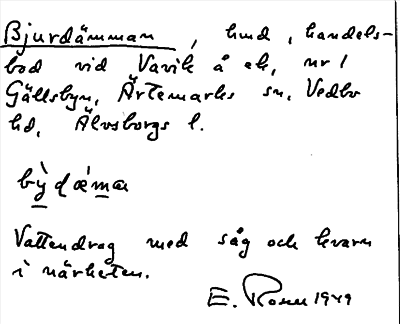 Bjurdämman, hmd, handels-
bod vid Vavik å ek, nr 1
Gällsbyn, Ärtemarks sn, Vedbo
hd, Älvsborgs l.
bỳdǽman
Vattendrag med såg och kvarn
i närheten.
E. Rosen 1949